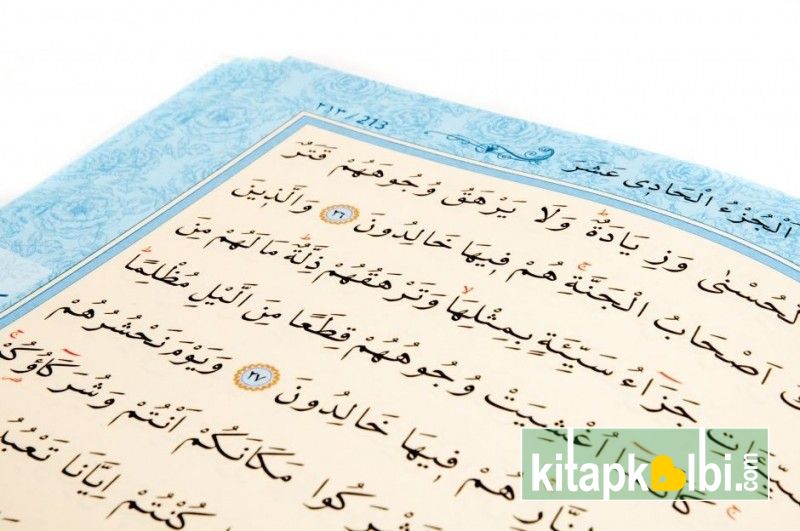 ٢١٣ / 213
اَلْجُزْءُ الْحَادِى عَشَرَ
وَزِيَادَةٌ وَلَا يَرْهَقُ وُجُوهَهُمْ قَتَرٌ
اَصْحَابُ الْجَنَّةِ هُمْ فِيهَا خَالِدُونَ ٢٦ وَالَّذِينَ
جَزَاءُ سَيِّئَةٍ بِمِثْلِهَا وَتَرْهَقُهُمْ ذِلَّةٌ مَا لَهُمْ مِنَ
اُغْشِيَتْ وُجُوهُهُمْ قِطَعًا مِنَ الَّيْلِ مُظْلِمًا
هُمْ فِيهَا خَالِدُونَ ٢٧ وَيَوْمَ نَحْشُرُهُمْ
مَكَانَكُمْ اَنْتُمْ وَشُرَكَاؤُكُمْ
كُنْتُمْ اِيَّانَا
kitapkalbi.com